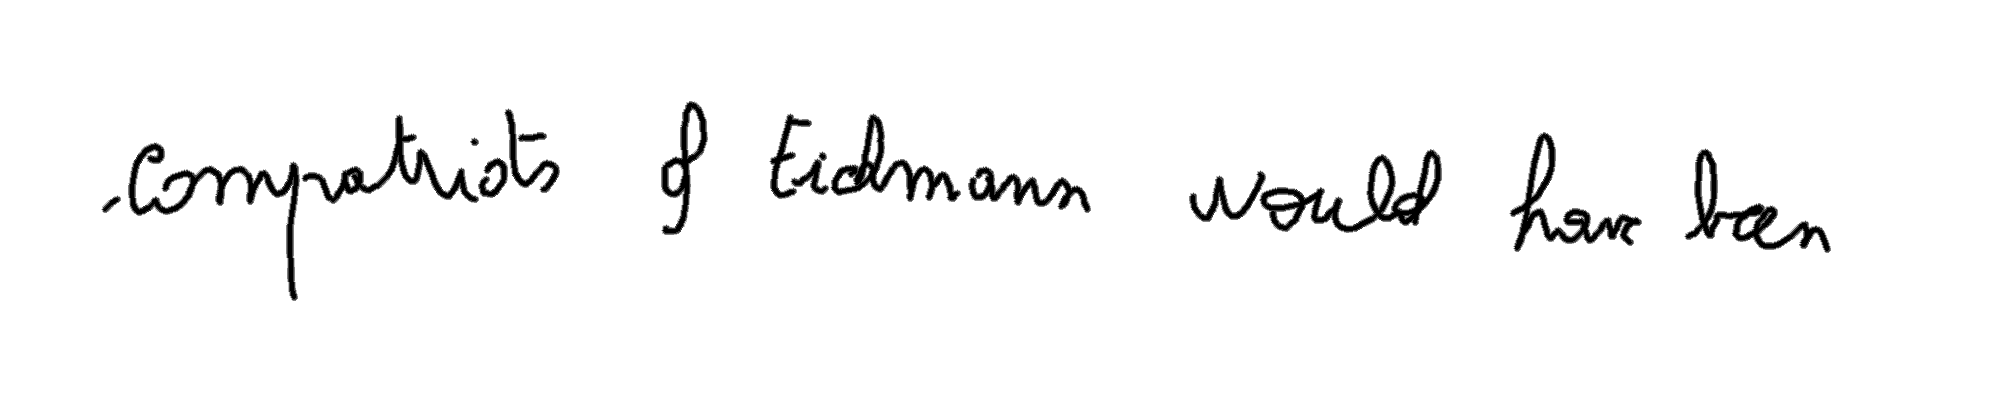 compatriots of Eichmann would have been